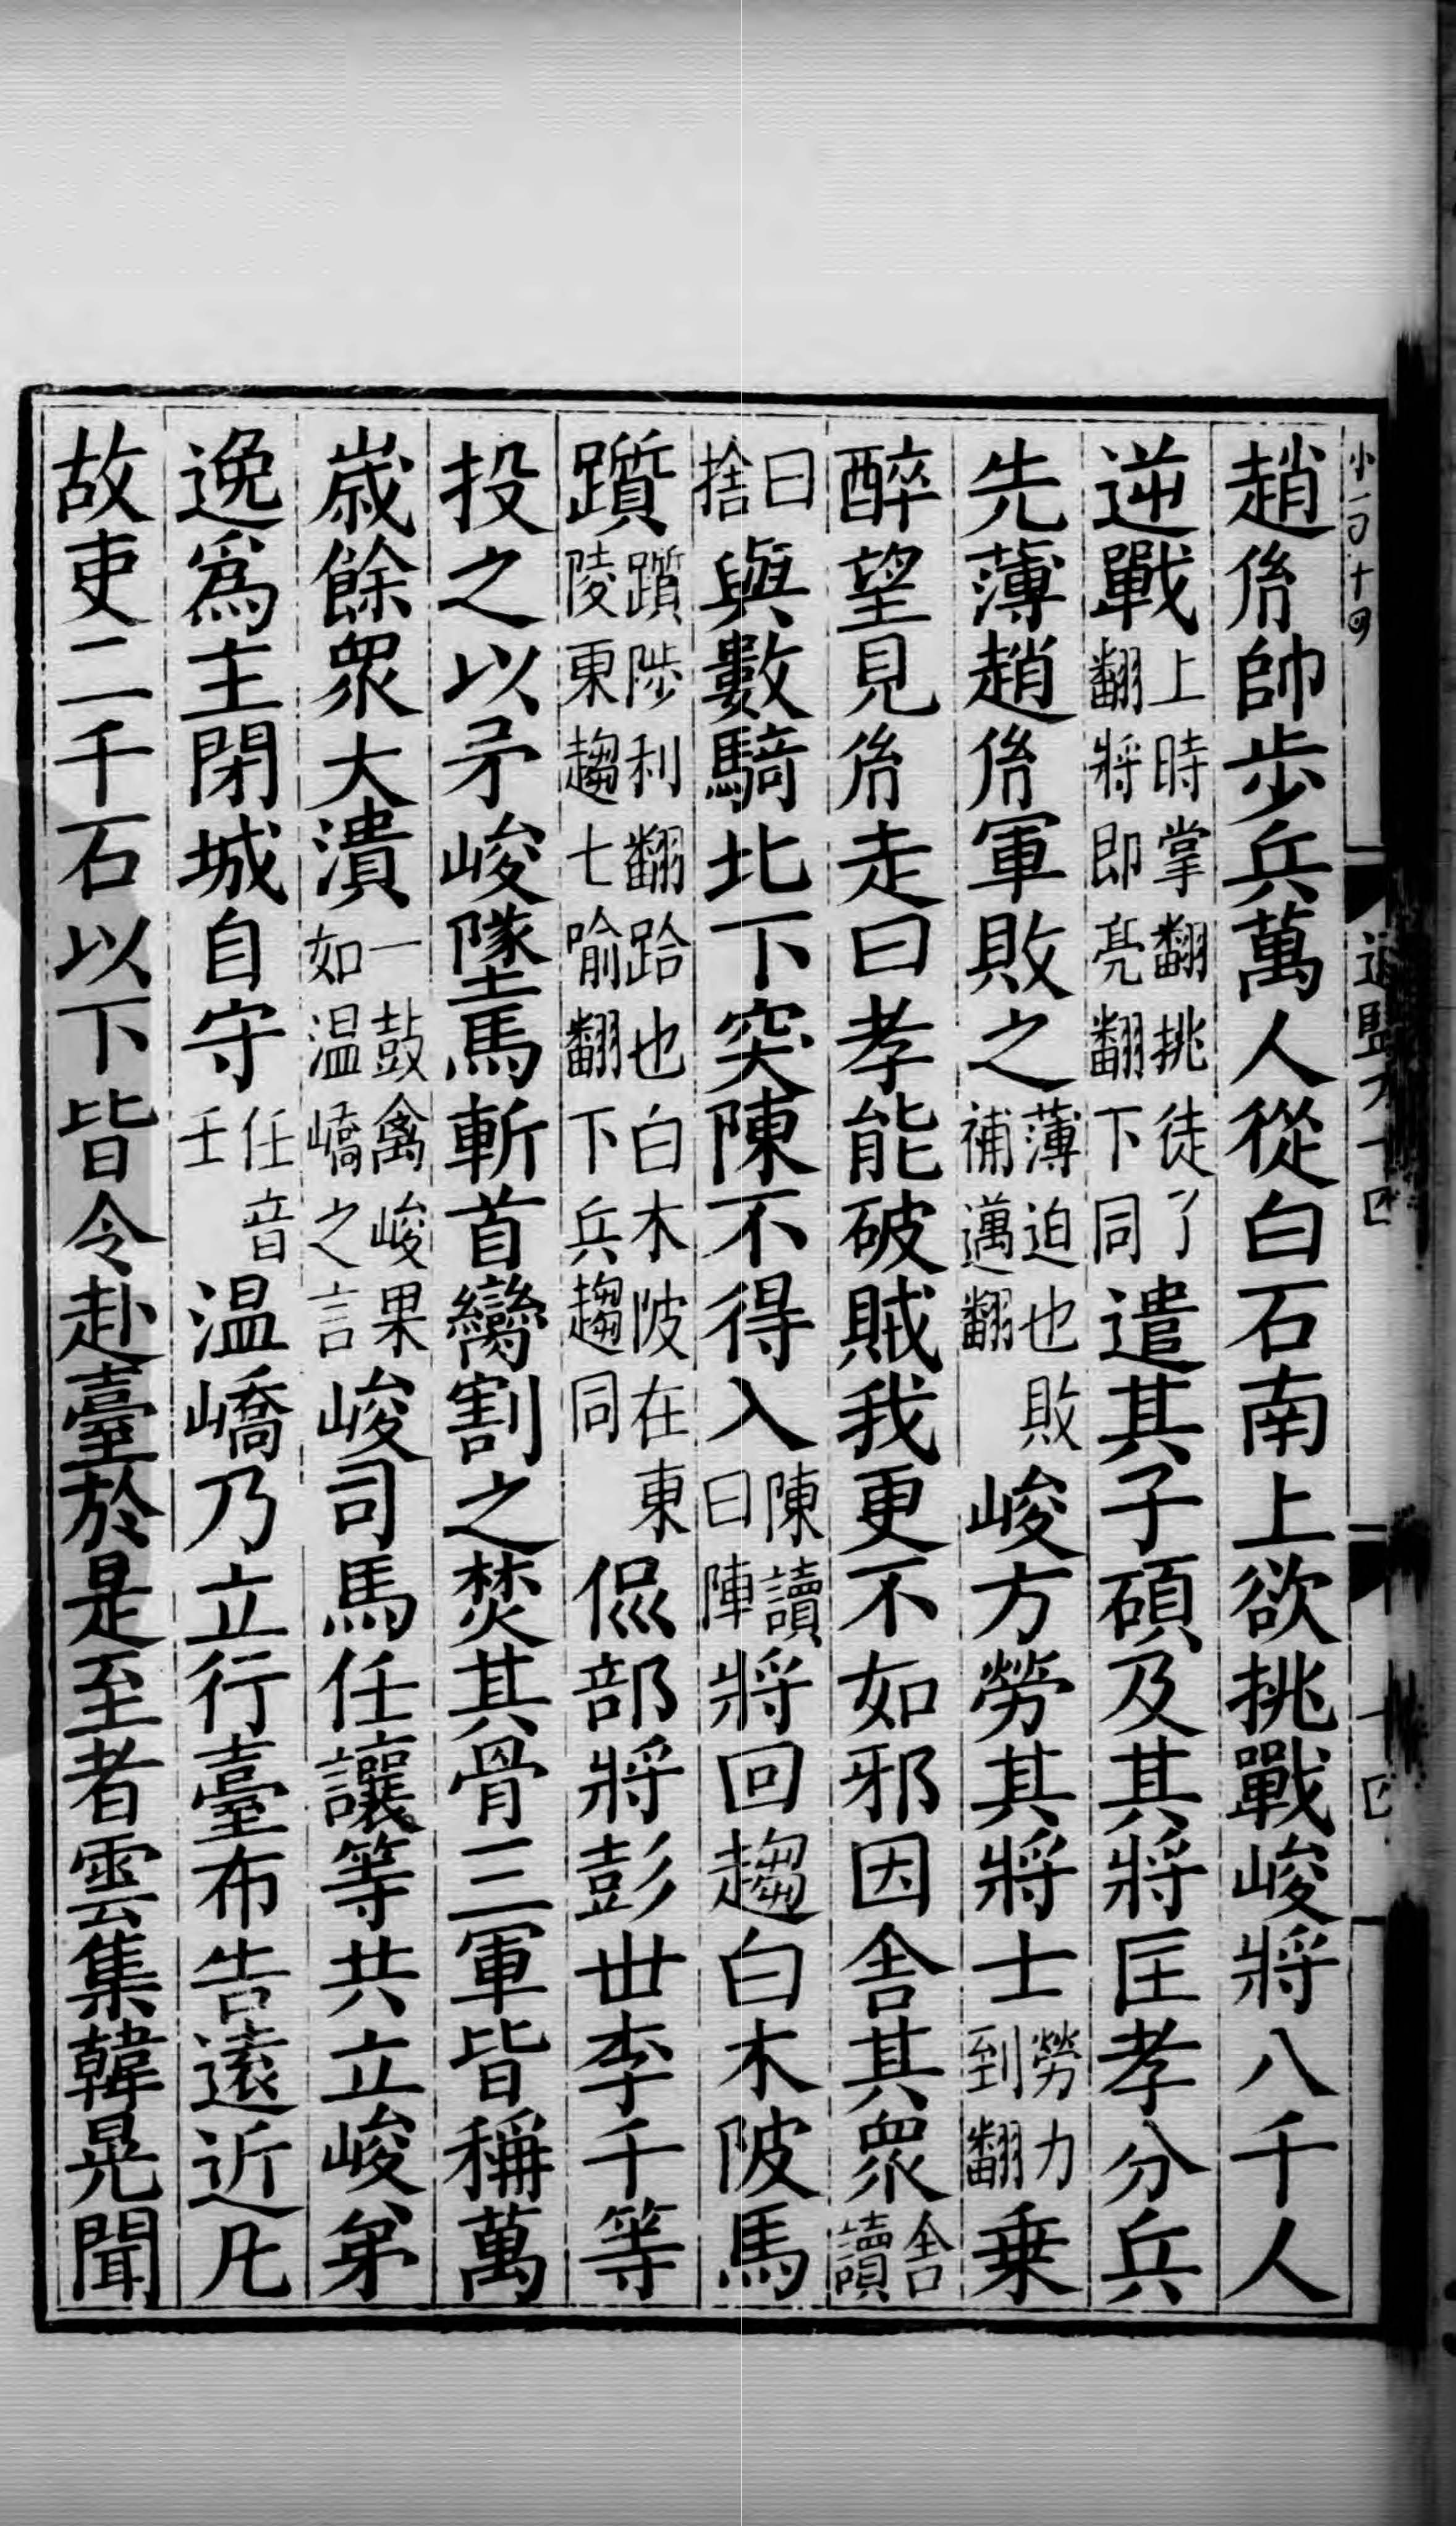 小一百十四
通鑑九十四
十四
趙胤帥步兵萬人從白石南上欲挑戰峻將八千人
逆戰上時掌翻挑徒了翻將即亮翻下同遣其子碩及其將匡孝分兵
先薄趙胤軍敗之薄迫也敗補邁翻峻方勞其將士勞力到翻乗
醉望見胤走曰孝能破賊我更不如邪因舎其衆舎讀
曰捨與數騎北下突陳不得入陳讀曰陣將回趨白木陂馬
躓躓陟利翻跲也白木陂在東陵東趨七喻翻下兵趨同侃部將彭世李千等
投之以矛峻墜馬斬首臠割之焚其骨三軍皆稱萬
歲餘衆大潰一鼓禽峻果如温嶠之言峻司馬任讓等共立峻弟
逸爲主閉城自守任音壬温嶠乃立行臺布告遠近凡
故吏二千石以下皆令赴臺於是至者雲集韓晃聞